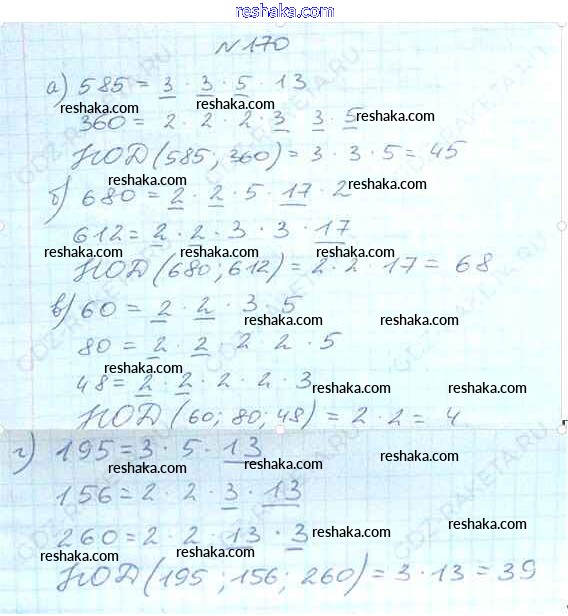 reshaka.com
№170
а) 585 = 3 · 3 · 5 · 13
reshaka.com reshaka.com
360 = 2 · 2 · 2 · 3 3 · 5 reshaka.com
НОД (585; 360) = 3 · 3 · 5 = 45
reshaka.com reshaka.com
б) 680 = 2 · 2 · 5 · 17 · 2
reshaka.com
612 = 2 · 2 · 3 · 3 · 17
reshaka.com reshaka.com reshaka.com
НОД (680; 612) = 2 · 2 · 17 = 68
в) 60 = 2 · 2 · 3 5
reshaka.com reshaka.com
80 = 2 · 2 · 2 2 · 5
reshaka.com
48 = 2 · 2 · 2 · 2 · 3 reshaka.com reshaka.com
НОД (60; 80; 48) = 2 · 2 = 4
г) 195 = 3 · 5 · 13
reshaka.com reshaka.com reshaka.com
156 = 2 · 2 · 3 · 13
260 = 2 · 2 · 13 · 3 reshaka.com reshaka.com
reshaka.com reshaka.com
НОД (195; 156; 260) = 3 · 13 = 39